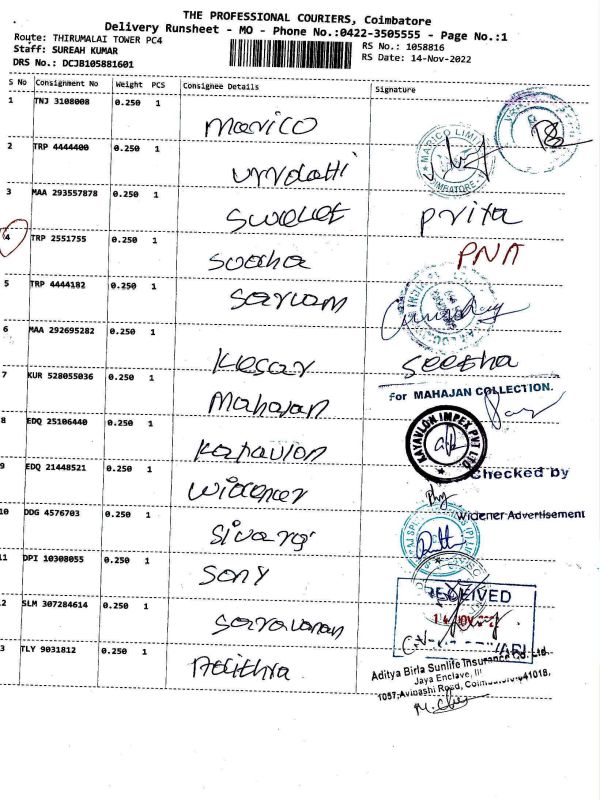 THE PROFESSIONAL COURIERS, Coimbatore
Delivery Runsheet - MO - Phone No.:0422-3505555 - Page No.:1
Route: THIRUMALAI TOWER PC4
RS No.: 1058816
Staff: SUREAH KUMAR
RS Date: 14-Nov-2022
DRS No.: DCJB105881601
S No Consignment No Weight PCS Consignee Details Signature
1 TNJ 3108008 0.250 1
Marico
2 TRP 4444400 0.250 1
MARICO LIMITED
COIMBATORE
3 MAA 293557878 0.250 1
Priya
4 TRP 2551755 0.250 1
PNA
5 TRP 4444182 0.250 1
6 MAA 292695282 0.250 1
Kesar
7 KUR 528055036 0.250 1
For MAHAJAN COLLECTION.
Mahajan
8 EDQ 25106440 0.250 1
KAYAVLON IMPEX PVT LTD
Kahavlon
Checked by
9 EDQ 21448521 0.250 1
Widener
Widener Advertisement
10 DDG 4576703 0.250 1
11 DPI 10308055 0.250 1
Sony
RECEIVED
2 SLM 307284614 0.250 1
Saravanan
3 TLY 9031812 0.250 1
Adithya
Aditya Birla Sunlife Insurance Co. Ltd.
Jaya Enclave,
1057, Avinashi Road, 641018,